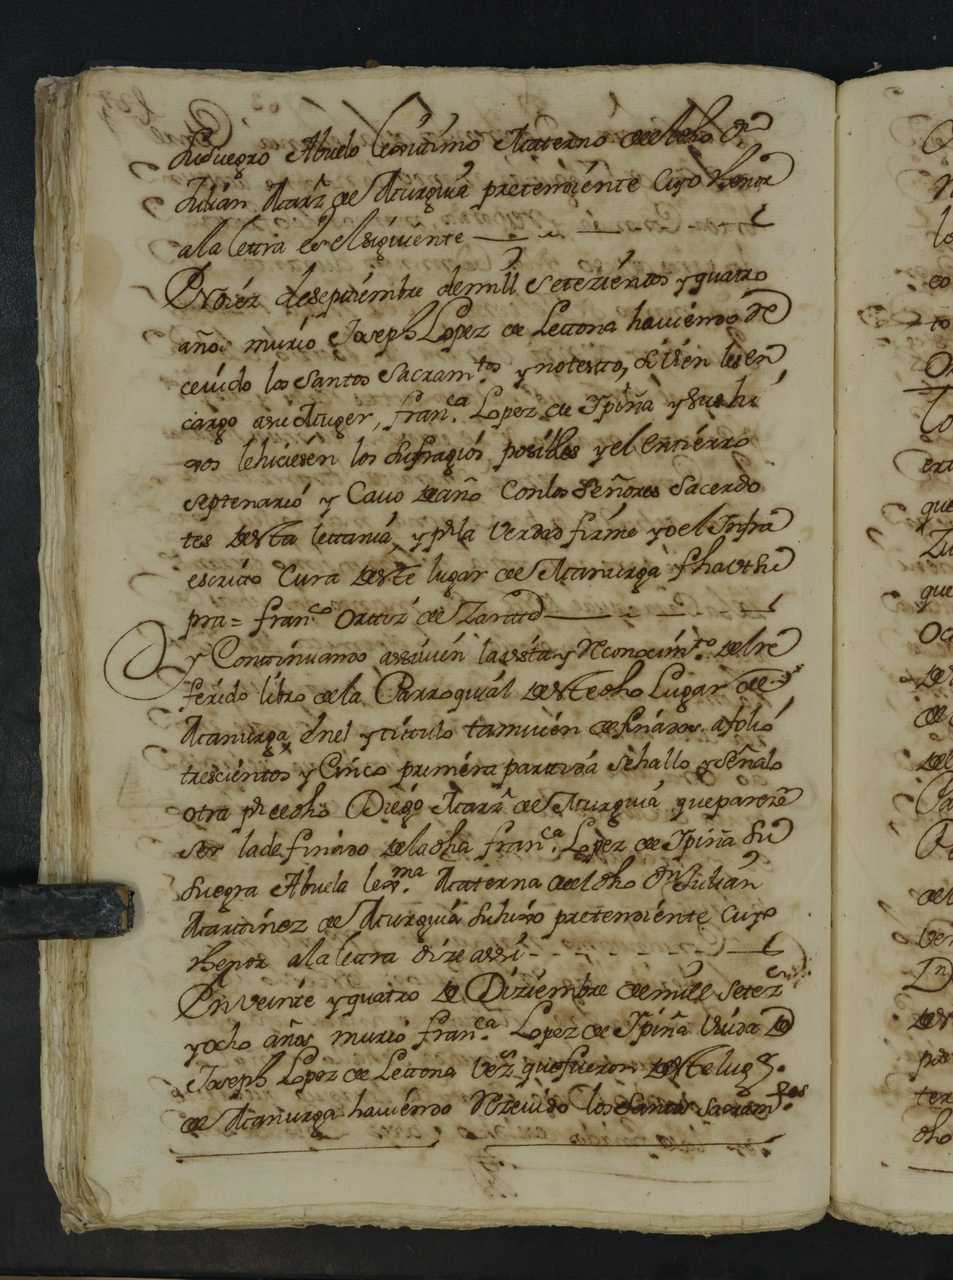 su suegro Abuelo lexitimo Materno de el dho Dn
Julian Martz de Murguia pretendiente cuyo thenor
a la letra es el siguiente
En diez de septiembre de mill setezientos y quatro
años murio Joseph Lopez de Lettona haviendo Re
cevido los santos sacramtos y no testo, si bien les en
cargo a su Muger, franca Lopez de Ipiña y sus hi
xos le hiciesen los sufragios posibles y el entierro
septenario y cavo de año con los señores sacerdo
tes de esta lettania, y pr la verdad firme yo el Infra
escrito Cura de este lugar de Manurga fha ut su
pra = Franco Ortiz de Zarate
y Continuando assi vien la vista y Reconocimto del re
ferido libro de la Parroquial de este dho Lugar de
Manurga, en el y titulo tamvien de finados a folio
trescientos y Cinco primera partida se hallo y señalo
otra pr el dho Diego Marz de Murguia que pareze
ser la de finado de la dha Franca Lopez de Ipiña su
suegra Abuela lexma Materna de el dho Dn Julian
Martinez de Murguia su hixo pretendiente cuyo
thenor a la letra dize assi
En veinte y quatro de Diziembre de mill setez
y ocho años murio Franca Lopez de Ipiña viuda de
Joseph Lopez de Lettona vezs que fueron de este lugr
de Manurga haviendo Rezevido los santos sacramtos